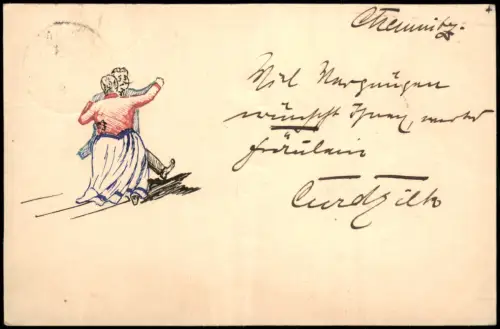 Chemnitz.
Viel Vergnügen
wünscht Ihnen, wertes
Fräulein
Curd